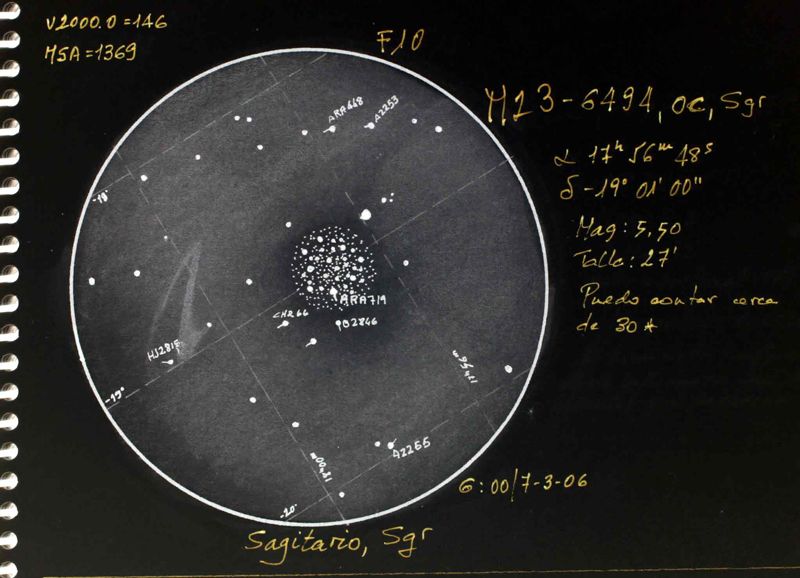 V2000.0=146
MSA=1369
F10
M23-6494, OC, Sgr
α 17h 56m 48s
δ -19° 01' 00"
Mag: 5,50
Talla: 27'
Puedo contar cerca
de 30*
ARA448
A2253
-18°
ARA719
CHR66
B2846
HJ2815
17h56m
-19°
A2265
18h00m
-20°
6:00/7-3-06
Sagitario, Sgr